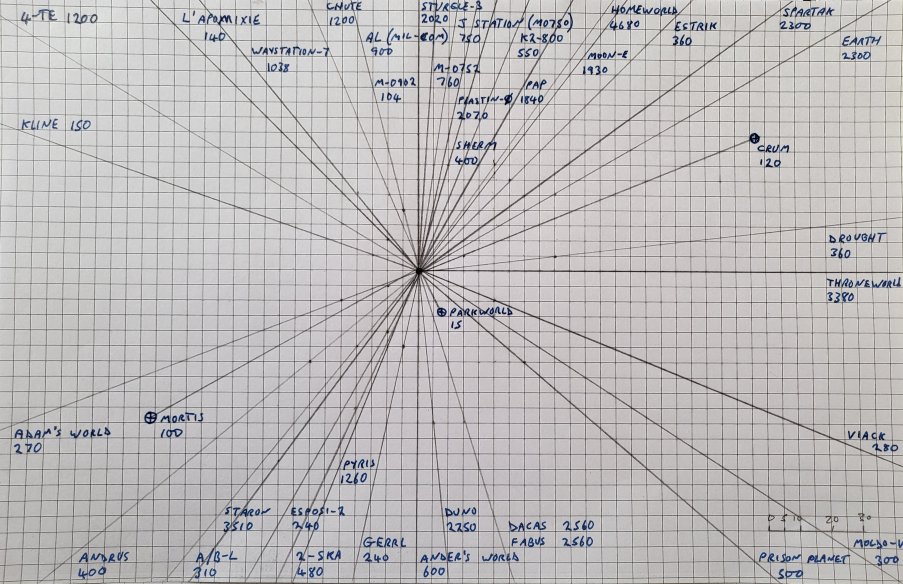 4-TE 1200
L'APOMIXIE
140
CHUTE
1200
STURGLE-3
2020
J STATION (M0750)
750
HOMEWORLD
4680
SPARTAK
2300
ESTRIK
360
EARTH
2300
WAYSTATION-7
1038
AL (MIL-COM)
900
K2-800
550
MOON-E
1930
M-0752
760
M-0902
104
PAP
1840
PLASTIN-Ø
2070
KLINE 150
SHERM
400
CRUM
120
DROUGHT
360
THRONEWORLD
3380
PARKWORLD
15
MORTIS
100
ADAM'S WORLD
270
VIACK
280
PYRIS
1260
STARON
3510
ESPOSI-2
240
DUNO
2250
DACAS 2560
FABUS 2560
0 5 10 20 30
ANDRUS
400
A/B-L
310
2-SKA
480
GERRL
240
ANDER'S WORLD
600
PRISON PLANET
500
300